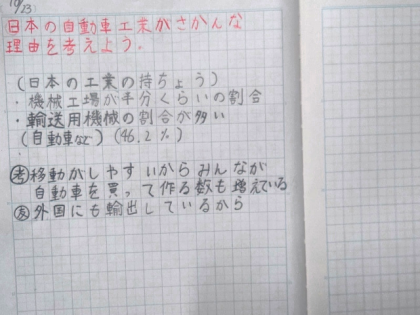 10/23
日本の自動車工業がさかんな
理由を考えよう。
(日本の工業の持ちょう)
・機械工場が半分くらいの割合
・輸送用機械の割合が多い
(自動車など)(46.2%)
考移動がしやすいからみんなが
自動車を買って作る数も増えている
友外国にも輸出しているから